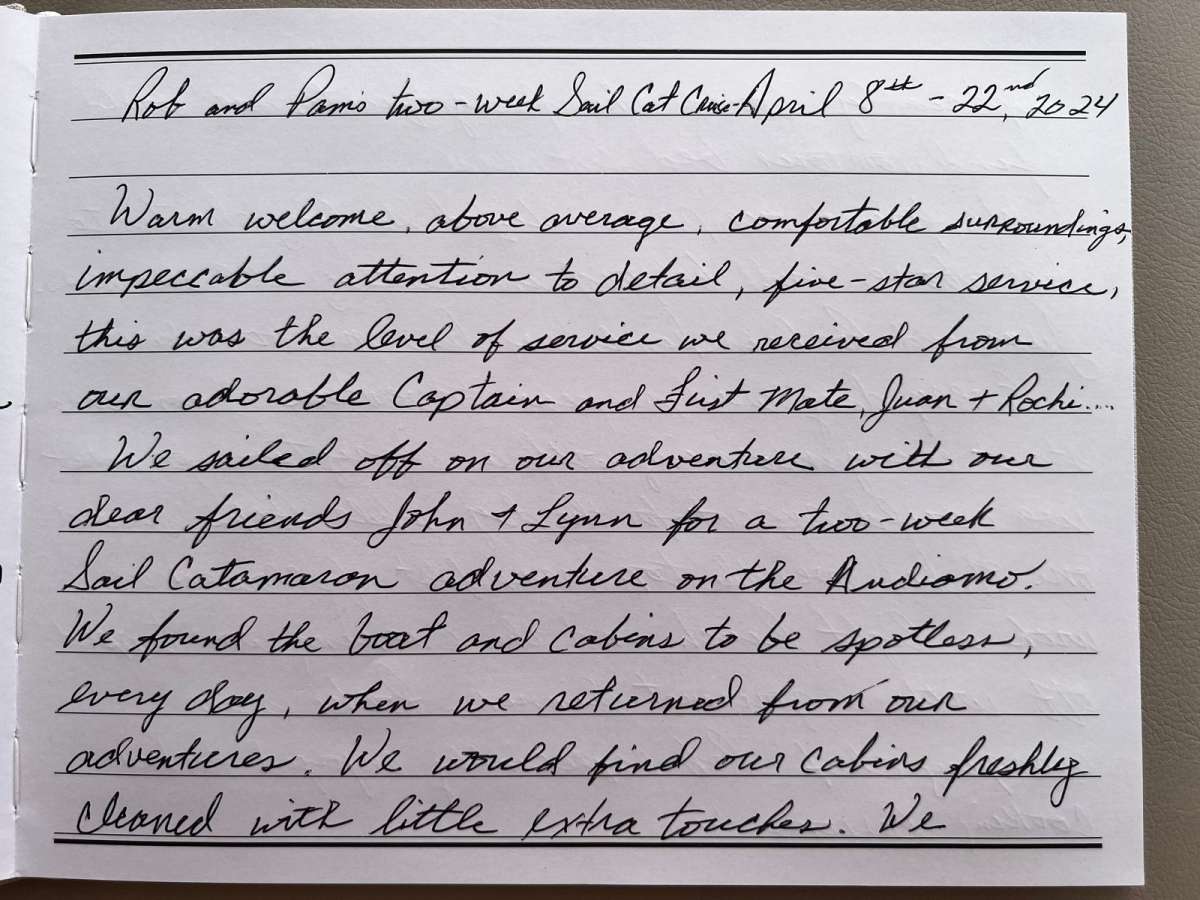 Rob and Pam's two-week Sail Cat Cruise - April 8th - 22nd, 2024
Warm welcome, above average, comfortable surroundings,
impeccable attention to detail, five-star service,
this was the level of service we received from
our adorable Captain and First Mate, Juan + Rochi....
We sailed off on our adventure with our
dear friends John + Lynn for a two-week
Sail Catamaran adventure on the Andiamo.
We found the boat and cabins to be spotless,
every day, when we returned from our
adventures. We would find our cabins freshly
cleaned with little extra touches. We